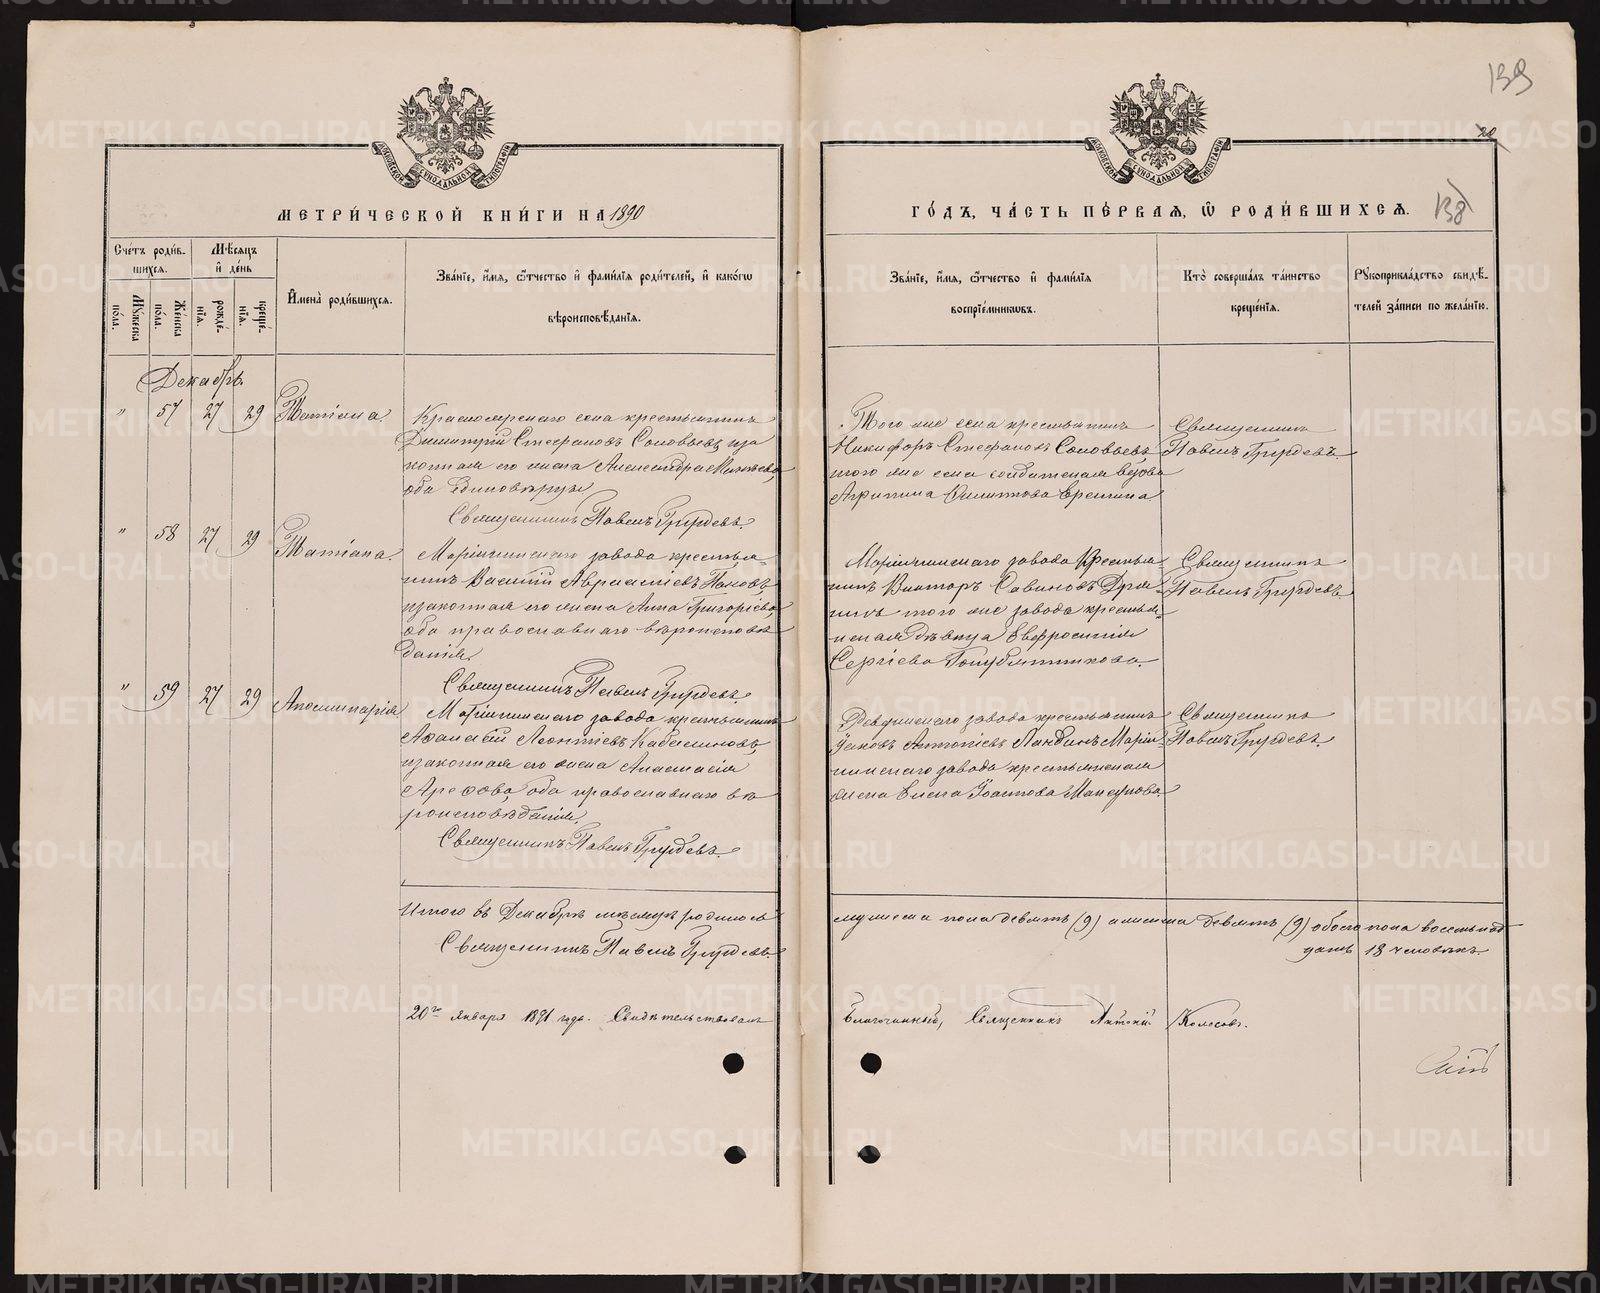 139
20
138
МЕТРИЧЕСКОЙ КНИГИ НА 1890
ГОДЪ, ЧАСТЬ ПЕРВАЯ, Ѡ РОДИВШИХСЯ.
Счетъ родившихся.
Мѣсяцъ и день
Мужеска пола.
Женска пола.
рожденія.
крещенія.
Имена родившихся.
Званіе, имя, ѿтчество и фамилія родителей, и какогω
вѣроисповѣданія.
Званіе, имя, ѿтчество и фамилія
воспріемниковъ.
Кто совершалъ таинство
крещенія.
Рукоприкладство свидѣ-
телей записи по желанію.
Декабрь
" 57 27 29 Татіана
Красноярскаго села крестьянинъ
Димитрій Стефановъ Соловьевъ, иза
конная его жена Александра
оба единовѣрцы
Священникъ Павелъ Груздевъ.
Того же села крестьянинъ
Никифоръ Стефановъ Соловьевъ
того же села вдова
Агрипина Еремина
Священникъ
Павелъ Груздевъ.
" 58 27 29 Татіана.
Маріинскаго завода крестья-
нинъ Василій Поповъ,
изаконная его жена Анна Григоріева,
оба православнаго вѣроисповѣ
данія.
Священникъ Павелъ Груздевъ.
Маріинскаго завода Крестья
нинъ Викторъ Савиновъ
того же завода крестья-
нская дѣвица Евфросинія
Сергіева Голубятникова.
Священникъ
Павелъ Груздевъ.
" 59 27 29 Аполлинарія
Маріинскаго завода крестьянинъ
Аѳанасій Леонтіевъ
изаконная его жена Анастасія
Ареѳова, оба православнаго вѣ
роисповѣданія.
Священникъ Павелъ Груздевъ.
Ревдинскаго завода крестьянинъ
Іаковъ Антоніевъ Маріи-
нскаго завода крестьянская
жена Елена Іоаннова
Священникъ
Павелъ Груздевъ.
Итого въ Декабрѣ мѣсяцѣ родилось
мужеска пола девять (9) а женска девять (9) обоего пола восемьнад
цать 18 человѣкъ.
Священникъ Павелъ Груздевъ
20го января 1891 года. Свидѣтельствовалъ
Благочинный, Священникъ Антоній Колосовъ.
METRIKI.GASO-URAL.RU